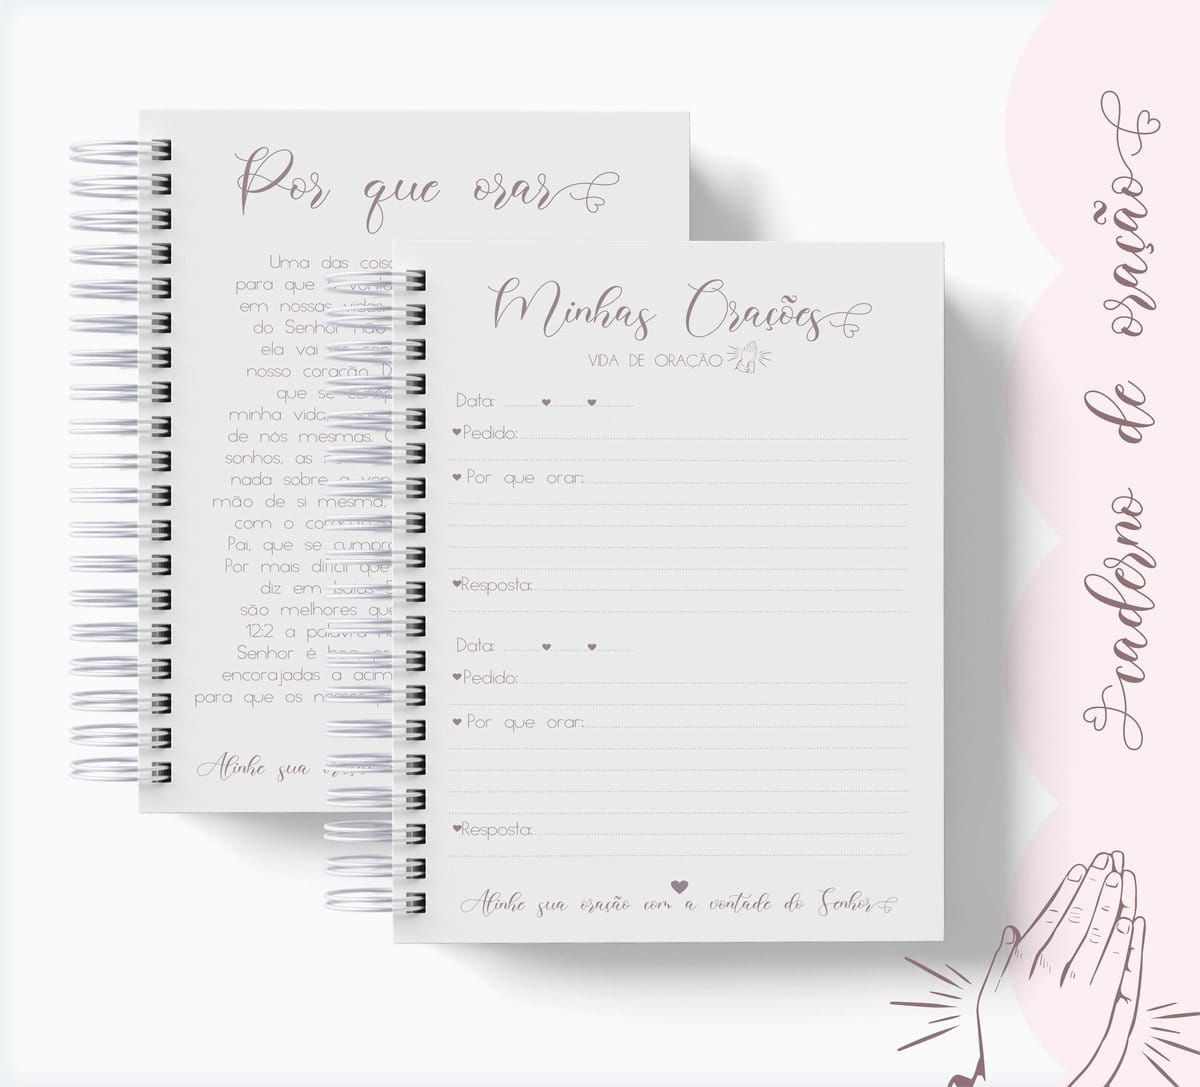 Por que orar
Uma das cois
para que
em nossas vidas
do Senhor não
ela vai
nosso coração
que se
minha vida,
de nós mesmas,
sonhos, as
nada sobre a
mão de si mesma,
com o
Pai, que se cumpra
Por mais difícil que
diz em Isaías
são melhores que
12:2 a palavra
Senhor é
encorajadas a acim
para que os
Alinhe sua
Minhas Orações
VIDA DE ORAÇÃO
Data:
Pedido:
Por que orar:
Resposta:
Data:
Pedido:
Por que orar:
Resposta:
Alinhe sua oração com a vontade do Senhor
caderno de oração